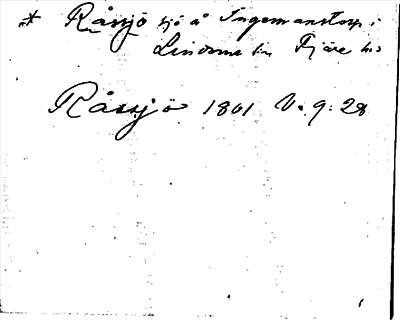 * Råssjö sjö å Ingemanstorp i
Lindome sn Fjäre hd
Råssjö 1861 V. 9: 28